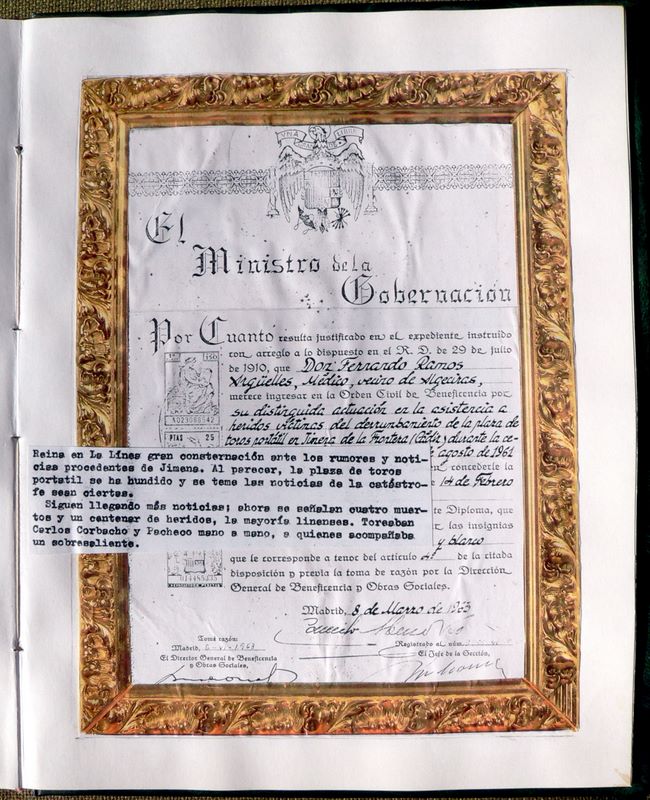 UNA
LIBRE
El
Ministro de la
Gobernación
Por Cuanto resulta justificado en el expediente instruido
con arreglo a lo dispuesto en el R. D. de 29 de julio
de 1910, que Don Fernando Ramos
Argüelles, Médico, vecino de Algeciras,
merece ingresar en la Orden Civil de Beneficencia por
su distinguida actuación en la asistencia a
heridos víctimas del derrumbamiento de la plaza de
toros portátil en Jimena de la Frontera (Cádiz) durante la ce-
PTAS 25
agosto de 1961
concederle la
14 de Febrero
Reina en La Línea gran consternación ante los rumores y noti-
cias procedentes de Jimena. Al parecer, la plaza de toros
portatil se ha hundido y se teme las noticias de la catástro-
fe sean ciertas.
Siguen llegando más noticias; ahora se señalan cuatro muer-
tos y un centenar de heridos, la mayoría linenses. Toreaban
Carlos Corbacho y Pacheco mano a mano, a quienes acompañaba
un sobresaliente.
te Diploma, que
las insignias
y blanco
que le corresponde a tenor del artículo 4º de la citada
disposición y previa la toma de razón por la Dirección
General de Beneficencia y Obras Sociales.
Madrid, 8 de Marzo de 1963
Tomé razón:
Madrid,
El Director General de Beneficencia
y Obras Sociales,
Registrado al núm.
El Jefe de la Sección,